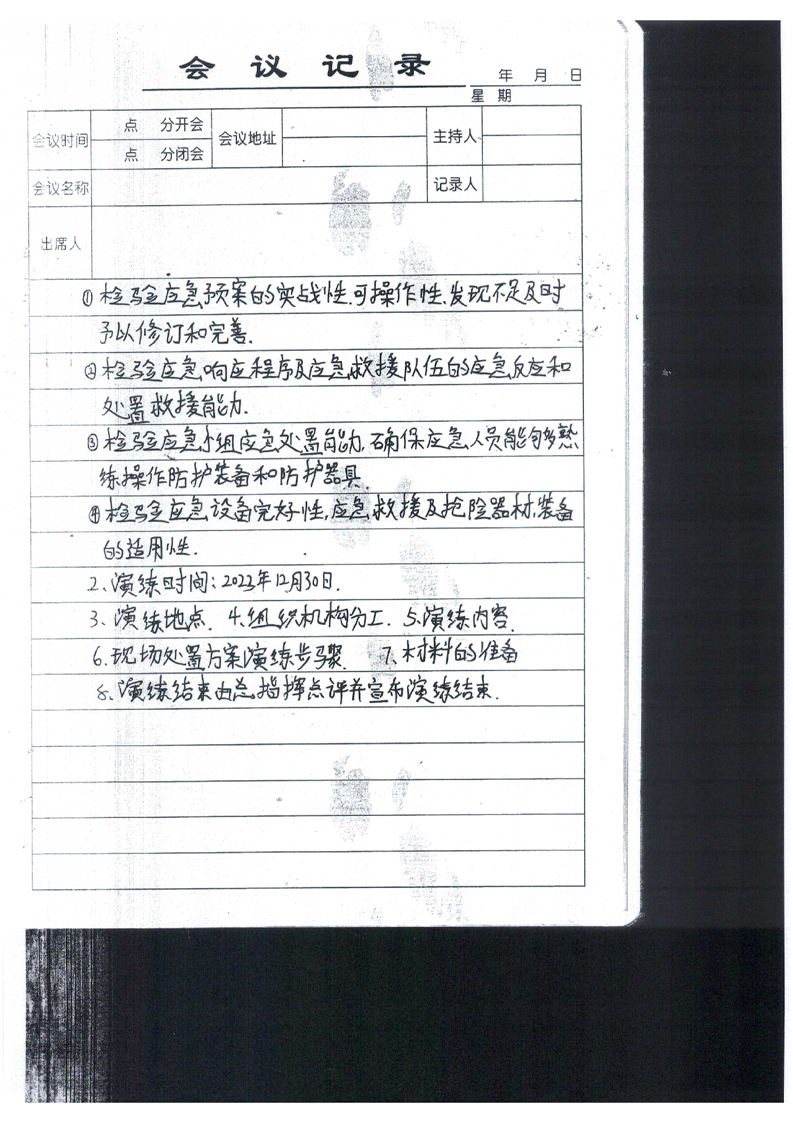 会议记录
年 月 日
星 期
会议时间 点 分开会 会议地址 主持人
点 分闭会
会议名称 记录人
出席人
①检验应急预案的实战性、可操作性,发现不足及时
予以修订和完善.
②检验应急响应程序及应急救援队伍的应急反应和
处置救援能力.
③检验应急小组应急处置能力,确保应急人员能够熟
练操作防护装备和防护器具.
④检验应急设备完好性,应急救援及抢险器材,装备
的适用性.
2、演练时间:2023年12月30日.
3、演练地点. 4、组织机构分工. 5、演练内容.
6、现场处置方案演练步骤. 7、材料的准备
8、演练结束由总指挥点评并宣布演练结束.